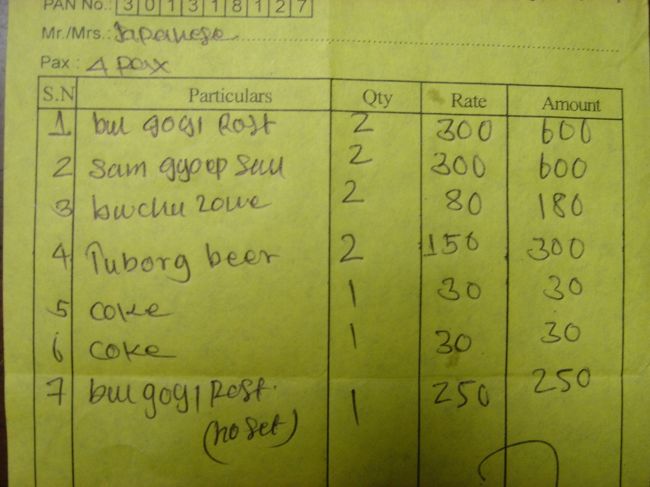 PAN No.: 3 0 1 3 1 8 1 2 7
Mr./Mrs.: Japanese
Pax : 4 pax
S.N Particulars Qty Rate Amount
1 bul gogi Rost 2 300 600
2 Sam gyoop Sau 2 300 600
3 80 180 2
4 Tuborg beer 2 150 300
5 coke 1 30 30
6 coke 1 30 30
7 bul gogi Rost. 1 250 250
(no set)